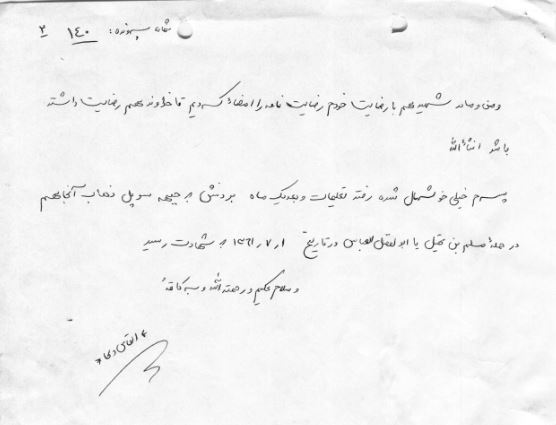 شماره پرونده: ۱۴۰ ۳
و من و مادر شهید هم با رضایت خودم رضایت نامه را امضاء کردیم تا خداوند هم رضایت داشته
باشد انشاءالله
پسرم خیلی خوشحال شده رفته تعلیمات و بعد یک ماه بردنش به جبهه سرپل ذهاب آنجا هم
در حمله مسلم بن عقیل یا ابوالفضل العباس در تاریخ ۱۳۶۱/۷/۱ به شهادت رسید
و سلام علیکم و رحمة الله و برکاته
التماس دعا